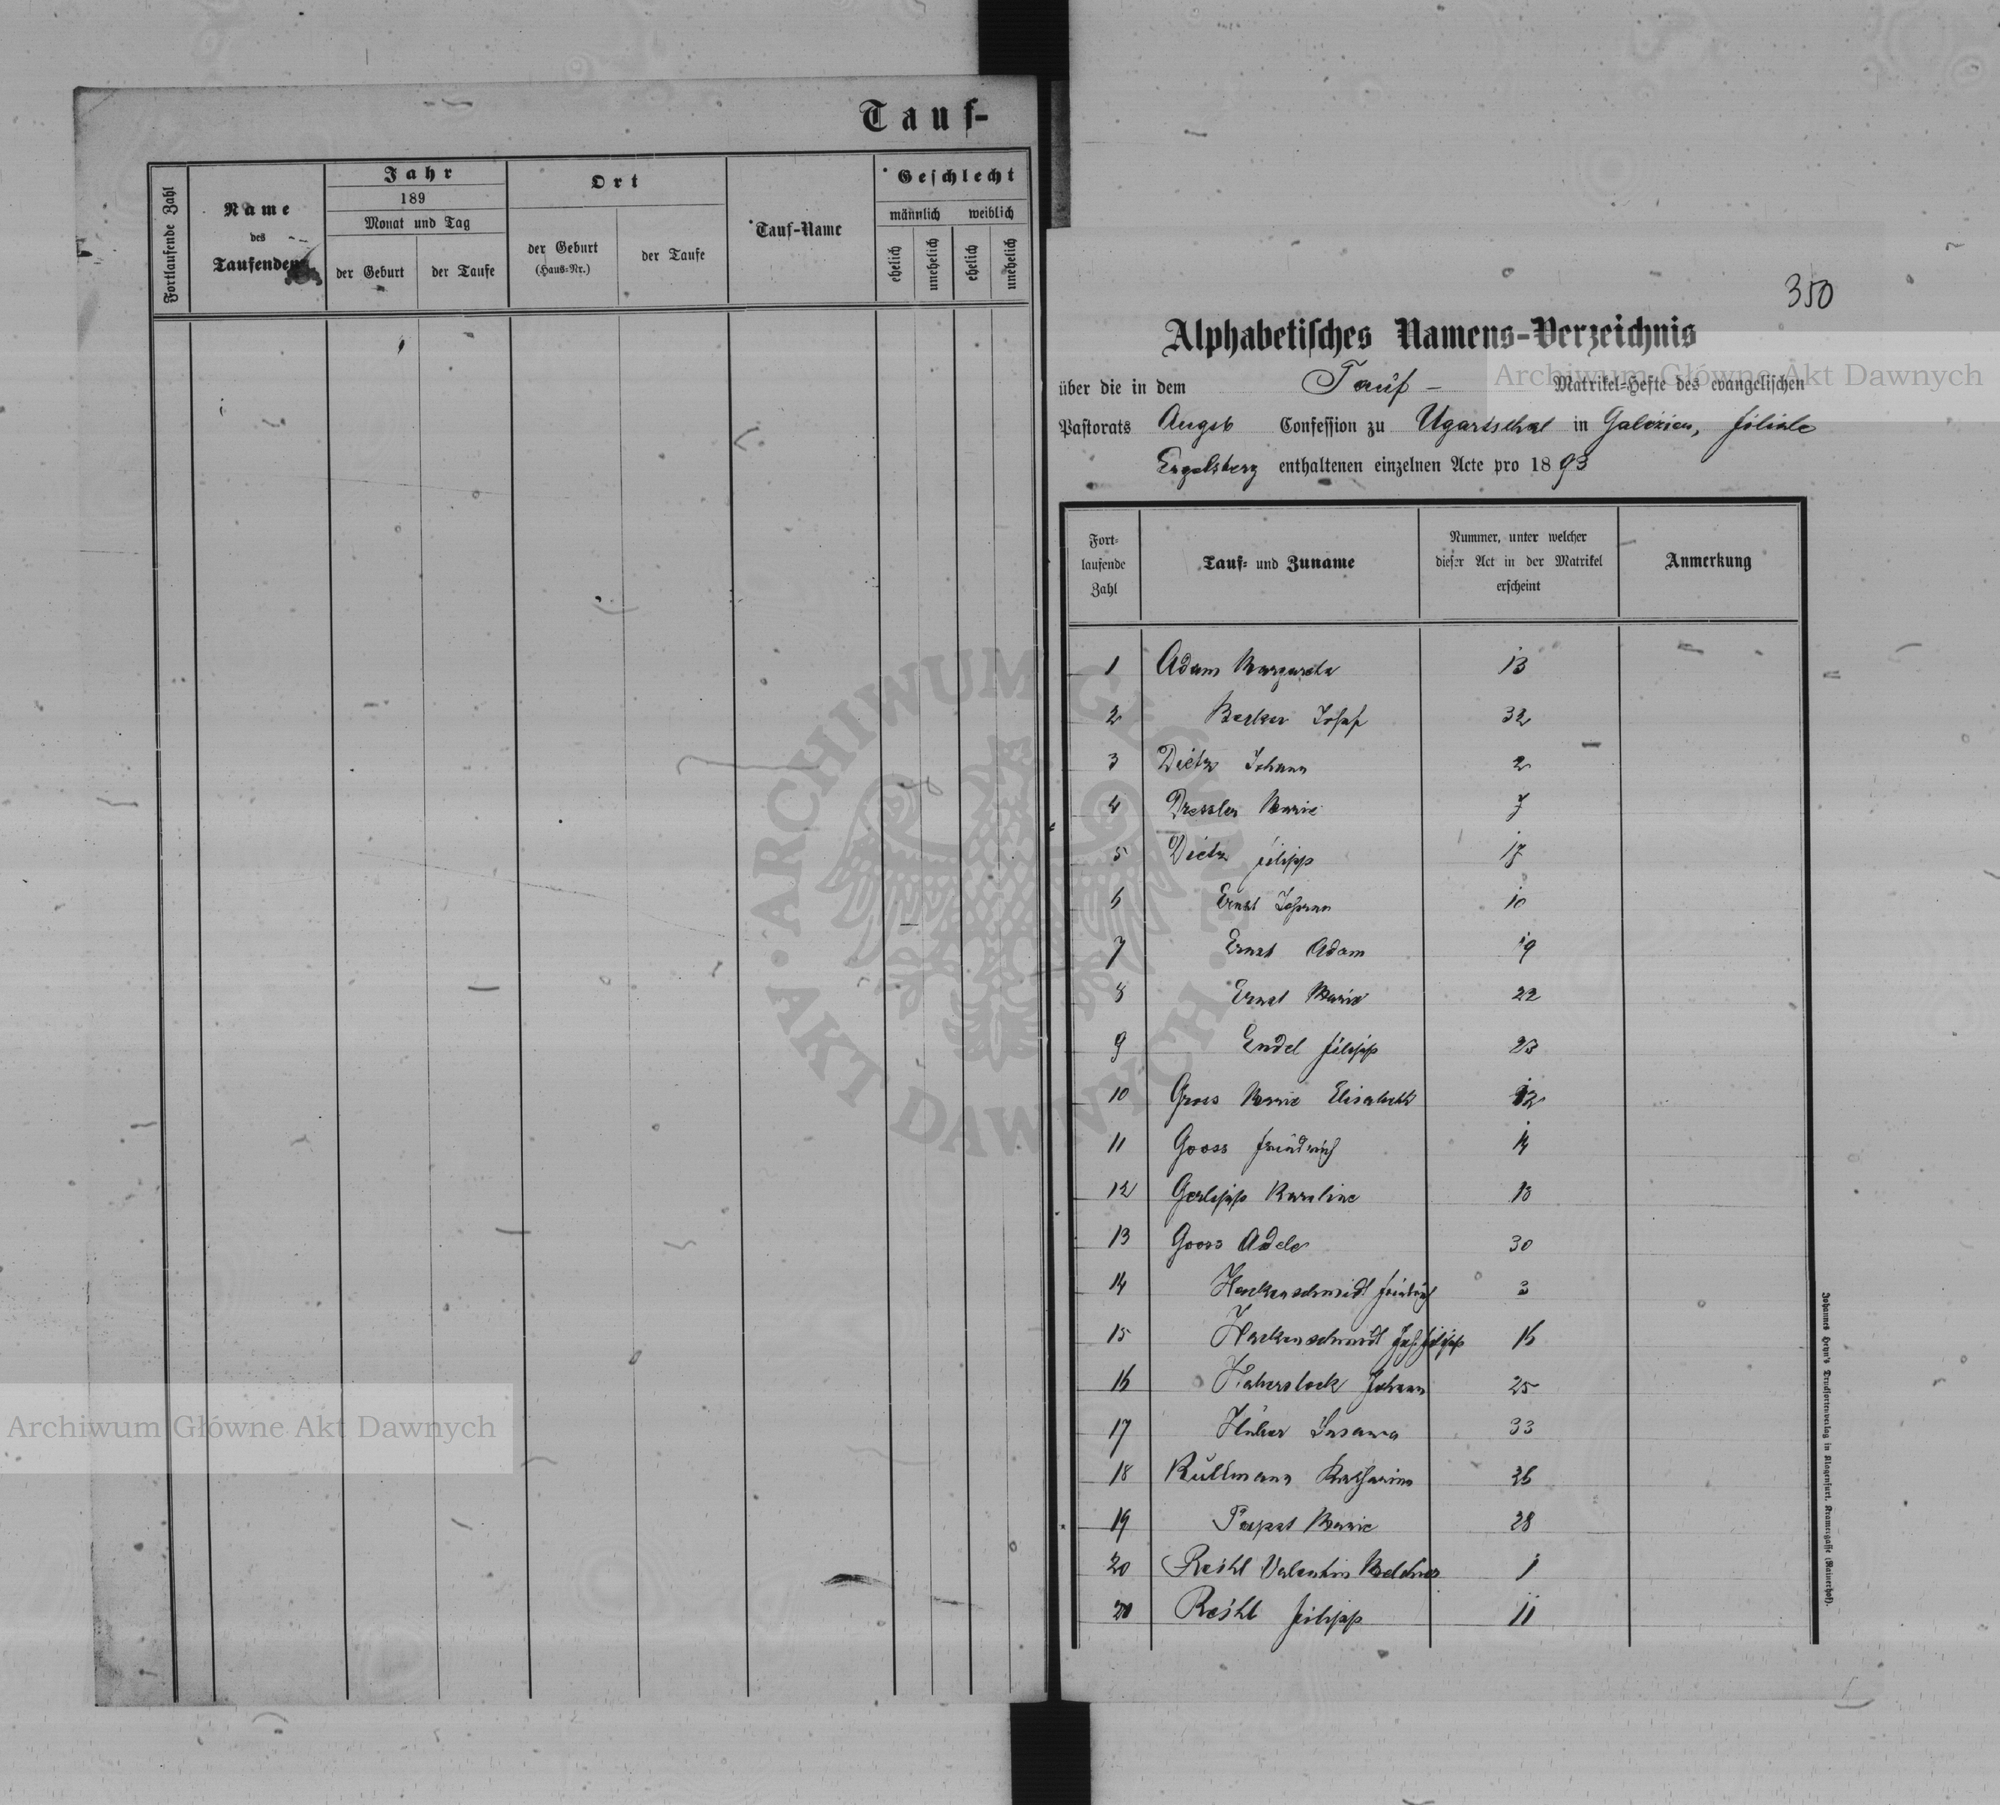 Tauf-
Fortlaufende Zahl
Name
des
Taufenden
Jahr
189
Monat und Tag
der Geburt
der Taufe
Ort
der Geburt
(Haus-Nr.)
der Taufe
Tauf-Name
Geschlecht
männlich weiblich
ehelich
unehelich
ehelich
unehelich
350
Alphabetisches Namens-Verzeichnis
über die in dem Tauf- Matrikel-Hefte des evangelischen
Pastorats Augsb Confession zu Ugartsthal in Galizien, Filiale
Engelsberg enthaltenen einzelnen Acte pro 1893
Fort-
laufende
Zahl
Tauf- und Zuname
Nummer, unter welcher
dieser Act in der Matrikel
erscheint
Anmerkung
1 Adam Margareta 13
2 Becker Josef 32
3 Dietz Johann 2
4 Dressler Marie 7
5 Dietz Filipp 17
6 Ernst Johann 10
7 Ernst Adam 19
8 Ernst Marie 22
9 Endel Filipp 23
10 Gross Marie Elisabeth 12
11 Gooss Friedrich 14
12 Gerlipp Karoline 18
13 Gooss Adele 30
14 Hackenschmidt Friedrich 3
15 Hackenschmidt Joh. Filipp 16
16 Haberstock Johann 25
17 Huber Susanna 33
18 Kullmann Katharina 26
19 Papst Marie 28
20 Reihl Valentin Melchior 1
21 Reihl Filipp 11
Johannes Heyn's Drucksortenverlag in Klagenfurt, Kramergasse (Rainerhof).
Archiwum Główne Akt Dawnych
Archiwum Główne Akt Dawnych
ARCHIWUM GŁÓWNE · AKT DAWNYCH ·